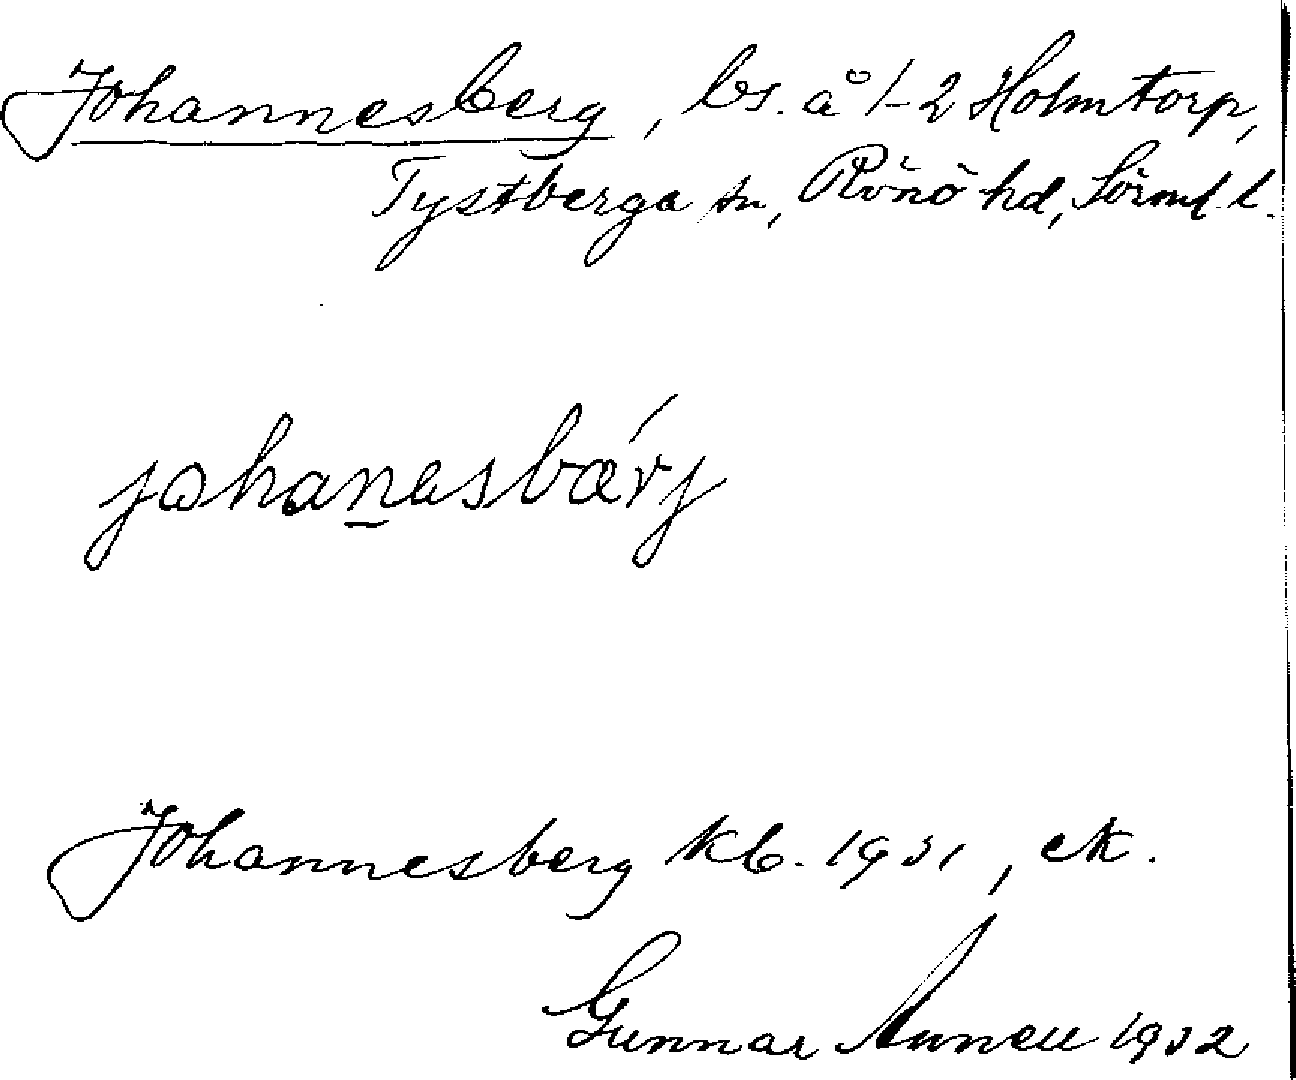 Johannesberg, ls. å 1-2 Holmtorp,
Tystberga sn, Rönö hd, Sörml. l.
johanesbærj
Johannesberg kb. 1931, ek.
Gunnar 1932